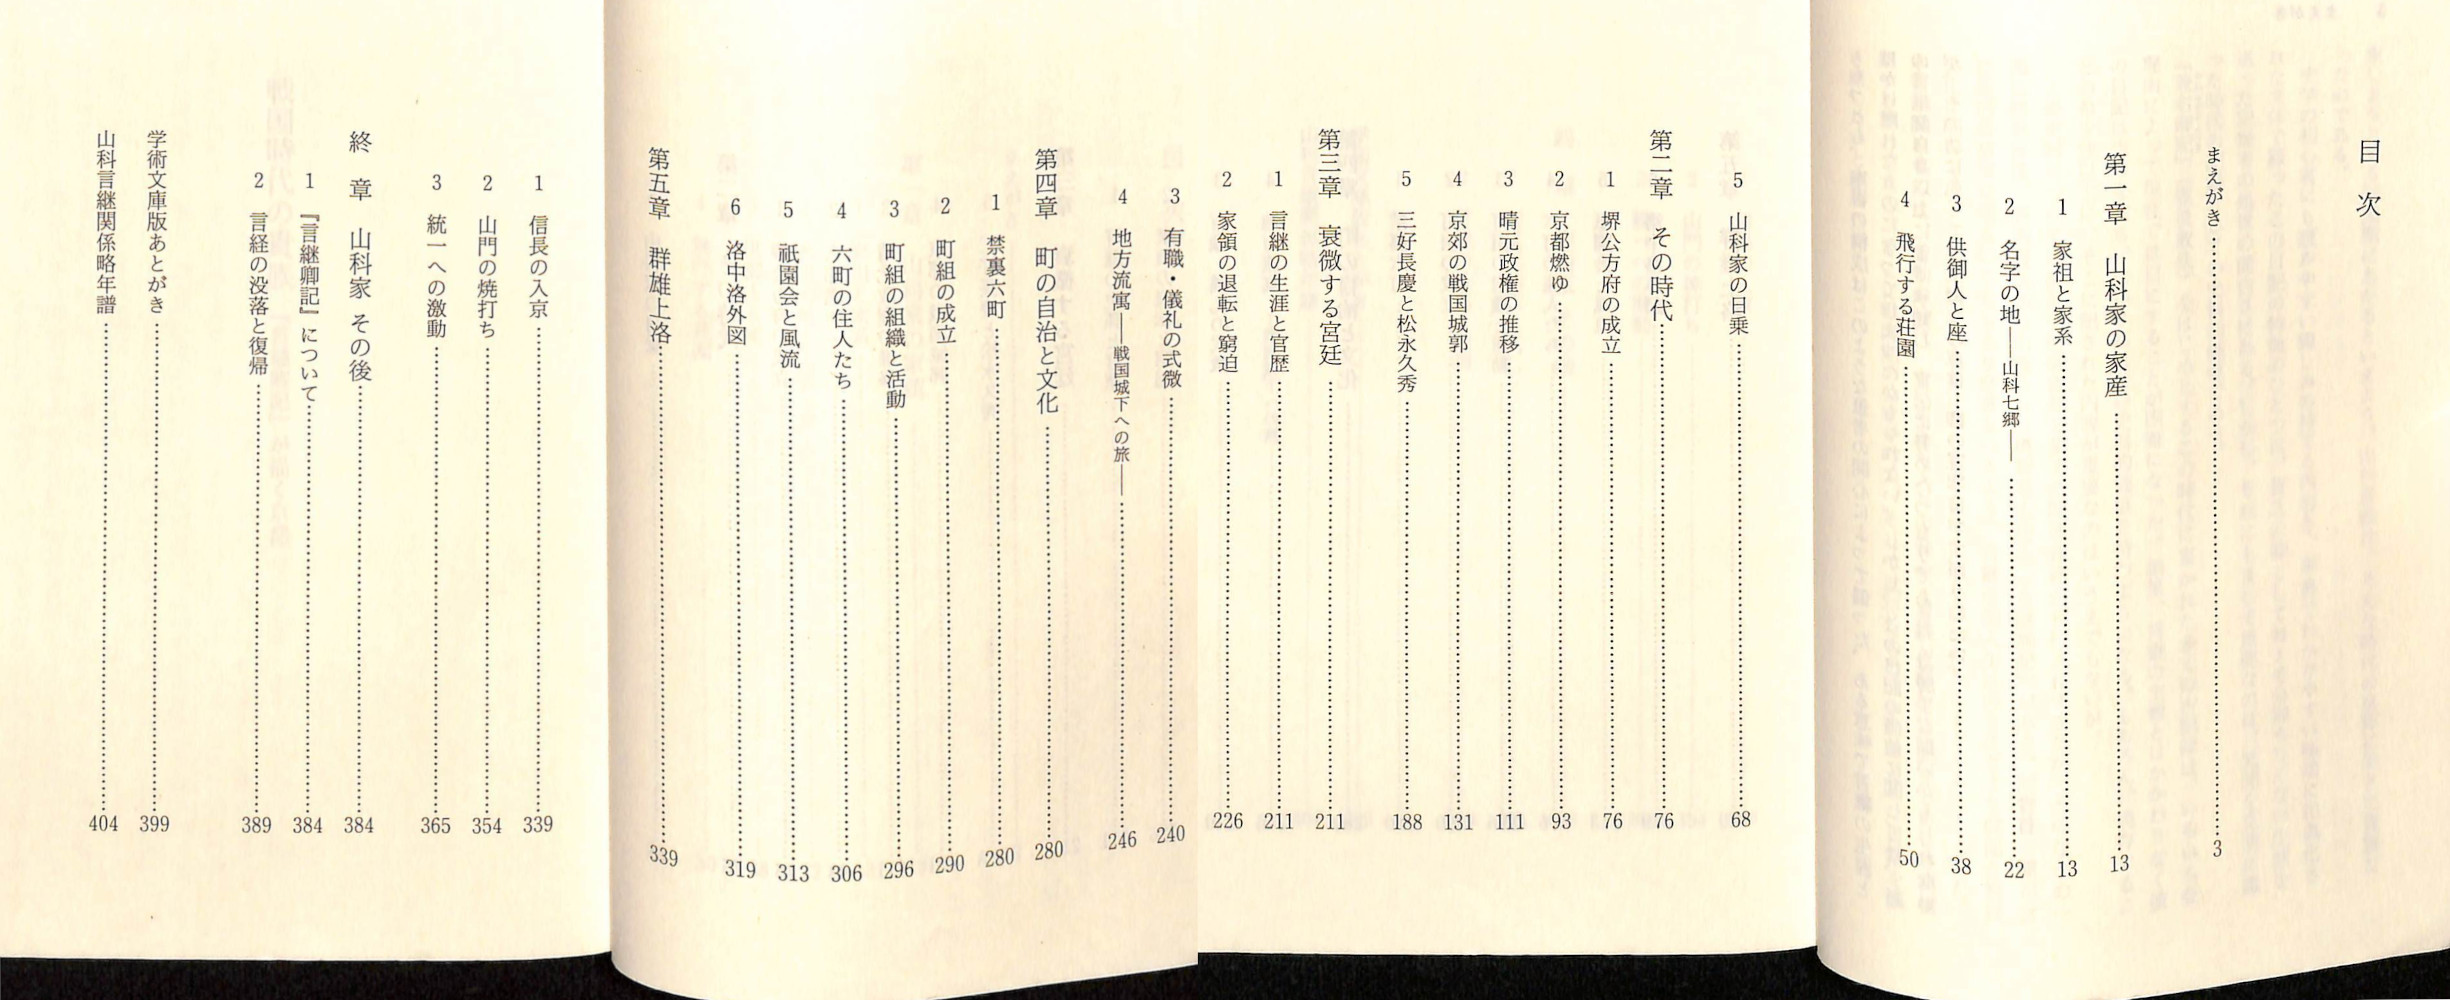 目次
まえがき……3
第一章 山科家の家産……13
1 家祖と家系……13
2 名字の地――山科七郷――……22
3 供御人と座……38
4 飛行する荘園……50
5 山科家の日乗……68
第二章 その時代……76
1 堺公方府の成立……76
2 京都燃ゆ……93
3 晴元政権の推移……111
4 京郊の戦国城郭……131
5 三好長慶と松永久秀……188
第三章 衰微する宮廷……211
1 言継の生涯と官歴……211
2 家領の退転と窮迫……226
3 有職・儀礼の式微……240
4 地方流寓――戦国城下への旅――……246
第四章 町の自治と文化……280
1 禁裏六町……280
2 町組の成立……290
3 町組の組織と活動……296
4 六町の住人たち……306
5 祇園会と風流……313
6 洛中洛外図……319
第五章 群雄上洛……339
1 信長の入京……339
2 山門の焼打ち……354
3 統一への激動……365
終章 山科家その後……384
1 『言継卿記』について……384
2 言経の没落と復帰……389
学術文庫版あとがき……399
山科言継関係略年譜……404